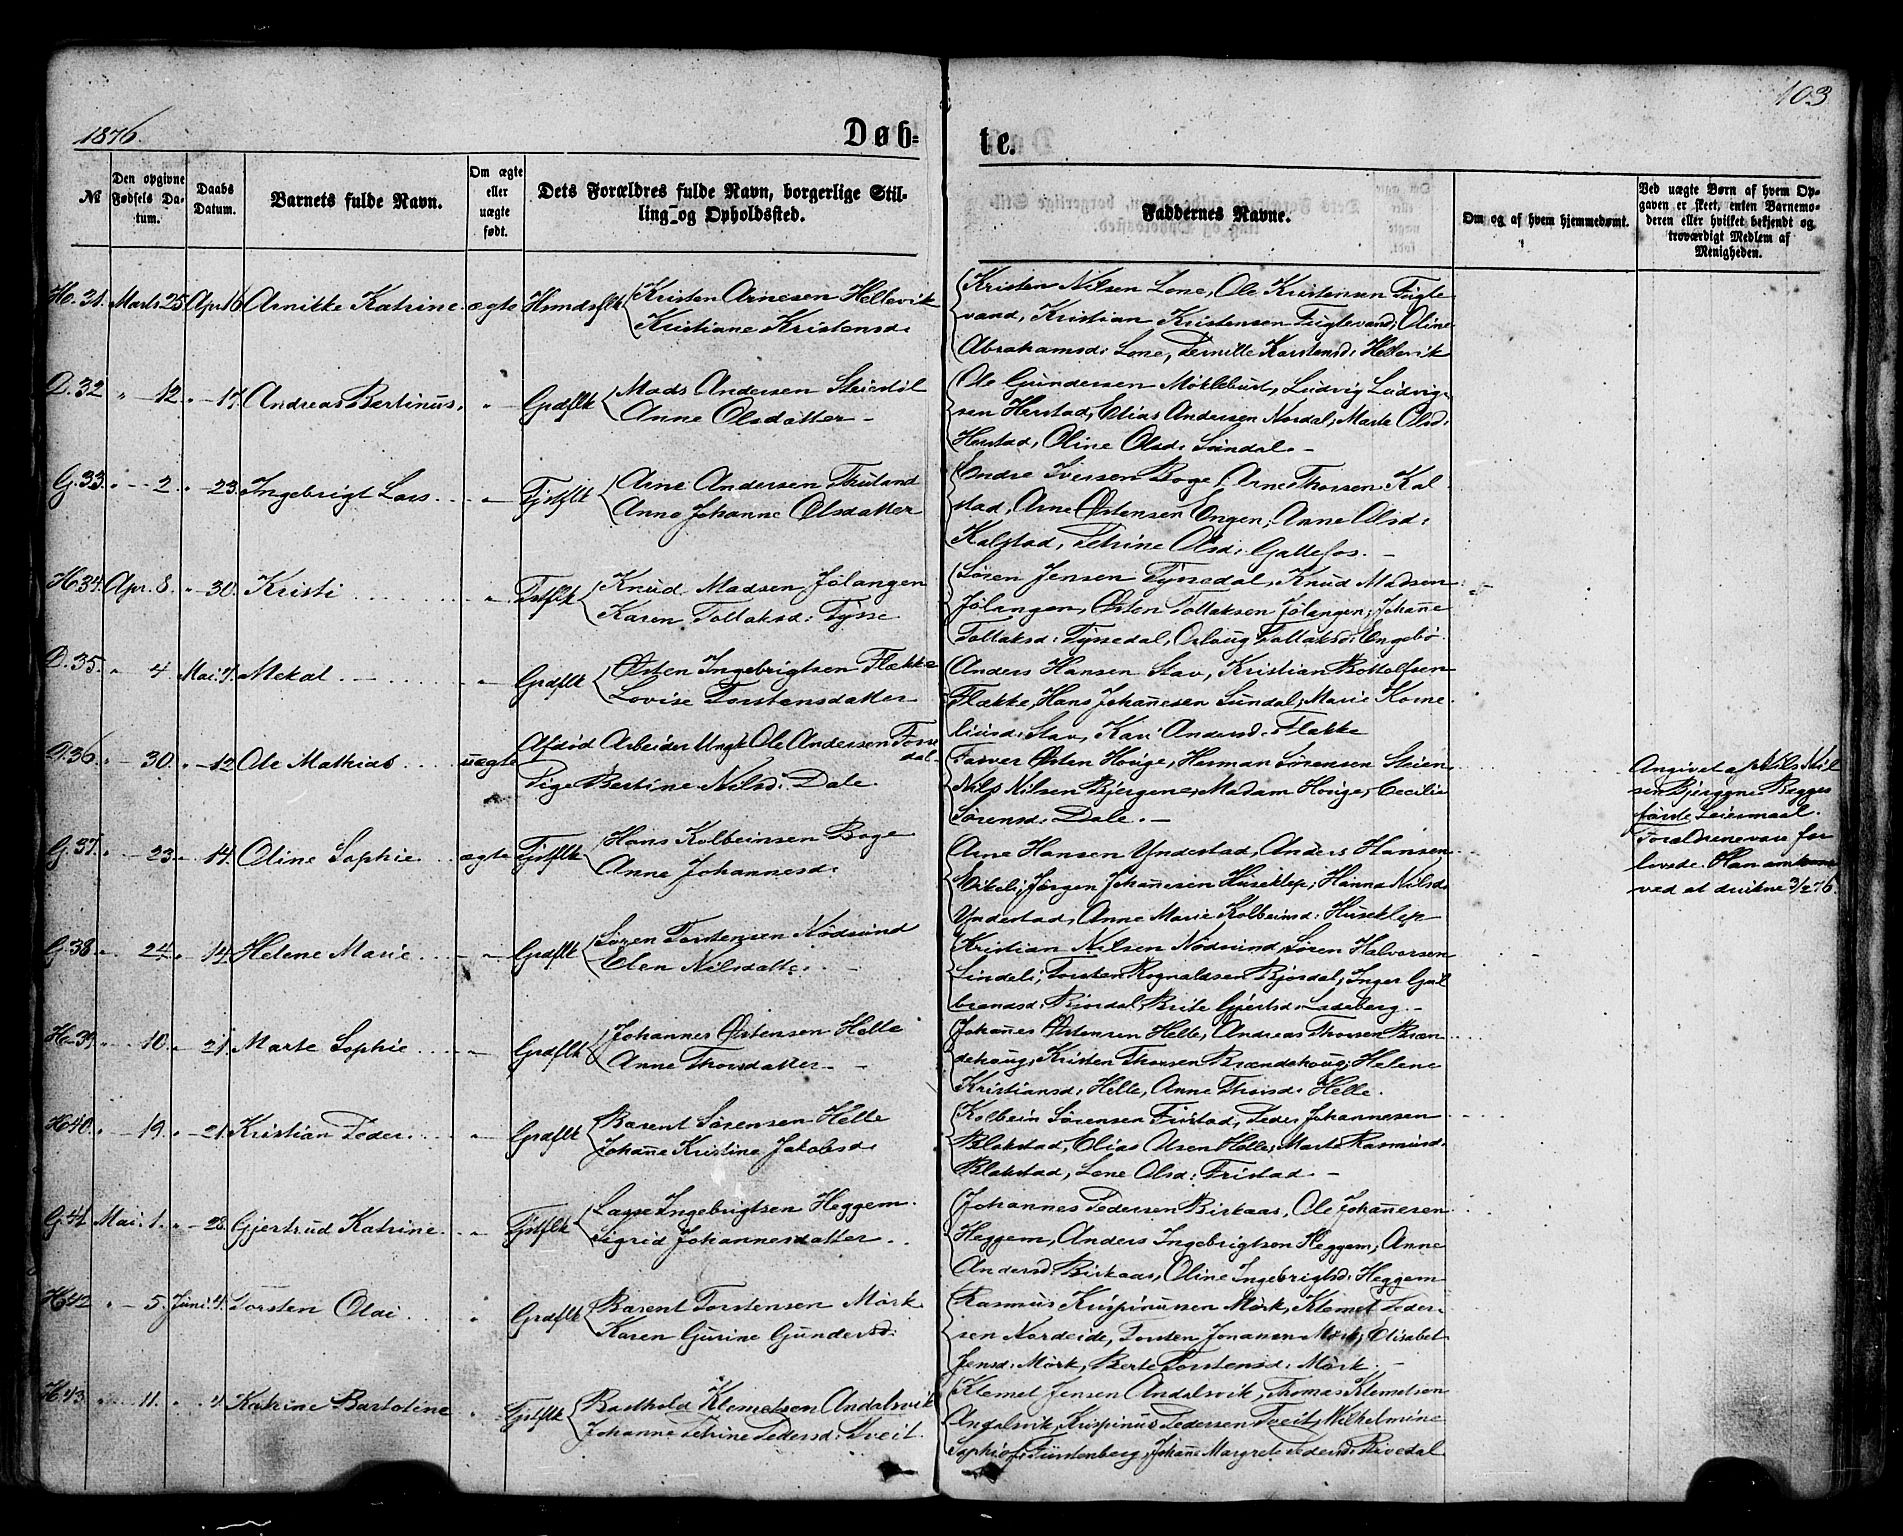 103
1876.
Døb-
te.
№
Den opgivne Fødsels Datum.
Daabs Datum.
Barnets fulde Navn.
Om ægte eller uægte født.
Dets Forældres fulde Navn, borgerlige Stilling og Opholdssted.
Faddernes Navne.
Om og af hvem hjemmedøbt.
Ved uægte Børn af hvem Opgaven er skeet, enten Barnemoderen eller hvilket bekjendt og troværdigt Medlem af Menigheden.
H. 31. Marts 25 Apr. 16 Arnikke Katrine ægte Hmdsflk Kristen Arnesen Hellevik
Kristiane Kristensd:
Kristen Nilsen Lone, Ole Kristensen Fugle-
vand, Kristian Kristensen Fuglevand, Oline
Abrahamsd: Lone, Pernille Karstensd: Hellevik
D. 32 " 12. " 17. Andreas Bertinus. " Grdflk Mads Andersen
Anne Olsdatter
Ole Gundersen Møklebust, Ludvig Ludvig-
sen Herstad, Elias Andersen Nordal, Marte Olsd:
Herstad, Oline Olsd: Sundal.
G. 33. " 2. " 23. Ingebrigt Lars " Fjstflk Arne Andersen
Anne Johanne Olsdatter
Endre Iversen Boge, Arne Thorsen Kal-
stad, Arne Østensen Engen, Anne Olsd:
Kalstad, Petrine Olsd: Gallefos.
H. 34. Apr. 8. " 30. Kristi " Knud Madsen Jölangen
Karen Tollaksd: Tysse
Sören Jensen Tyssedal, Knud Madsen
Jölangen, Østen Tollaksen Jölangen, Johanne
Tollaksd: Tyssedal, Oslaug Tollaksd: Engebö.
D. 35. " 4 Mai 7. Mekal " Grdflk Østen Ingebrigtsen Flække
Lovise Torstensdatter
Anders Hansen Stav, Kristian Bottolfsen
Flække, Hans Johannesen Sundal, Marie Korne-
liusd: Stav, Kari Andersd: Flække
D. 36. " 30. " 12 Ole Mathias uægte Afdød Arbeider Ungk. Ole Andersen
Pige Bertine Nilsd: Dale
Farver Østen Houge, Herman Sörensen Steien
Nils Nilsen Bjergene, Madam Houge, Cecilie
Sörensd: Dale.
Angivet af Nils Nil-
sen Bjergene. Begges
förste Leiermaal.
Forældrene vare for-
lovede. Han omkom
ved at drukne 3/2 76.
G. 37. " 23. " 14. Oline Sophie ægte Fjstflk Hans Kolbeinsen Boge
Anne Johannesd:
Arne Hansen Yndestad, Anders Hansen
Jörgen Johannesen Huseklep, Hanna Nilsd:
Yndestad, Anne Marie Kolbeinsd: Huseklep
G. 38. " 24 " 14. Helene Marie " Grdflk Sören Torstensen Nödsund
Elen Nilsdatter
Kristian Nilsen Nödsund, Sören Halvorsen
Lindeli, Torsten Rognaldsen Bjordal, Inger Gul-
brandsd: Bjordal, Brite Gjertsd: Ladeberg.
H. 39. " 10. " 21. Marte Sophie " Grdflk Johannes Østensen Helle
Anne Thorsdatter
Johannes Østensen Helle, Andreas Thorsen Bræn-
dehoug, Kristen Thorsen Brændehoug, Helene
Kristiansd: Helle, Anne Thorsd: Helle.
H. 40. " 19. " 21. Kristian Peder " Grdflk Barent Sörensen Helle
Johanne Kristine Jakobsd:
Kolbein Sörensen Fristad, Peder Johannesen
Blakstad, Elias Olsen Helle, Marte Rasmusd:
Blakstad, Lene Olsd: Fristad.
G. 41 Mai 1. " 28. Gjertrud Katrine " Fjstflk Lasse Ingebrigtsen Heggem.
Sigrid Johannesdatter
Johannes Pedersen Birkaas, Ole Johannesen
Heggem, Anders Ingebrigtsen Heggem, Anne
Andersd: Birkaas, Oline Ingebrigtsd: Heggem
H. 42 " 5. Juni 4. Torsten Olai " Grdflk Barent Torstensen Mörk
Karen Gurine Gundersd:
Rasmus Krispinussen Mörk, Klemet Peder-
sen Nordeide, Torsten Johansen Mörk, Elisabet
Jensd: Mörk, Berte Torstensd: Mörk.
H. 43 " 11. " 4. Katrine Bartoline " Fjstflk Barthold Klemetsen Andalsvik
Johanne Petrine Pedersd: Tveit.
Klemet Jensen Andalsvik, Thomas Klemetsen
Andalsvik, Krispinus Pedersen Tveit, Wilhelmine
Sophie Fürstenberg, Johanne Margrete Pedersd: Rivedal